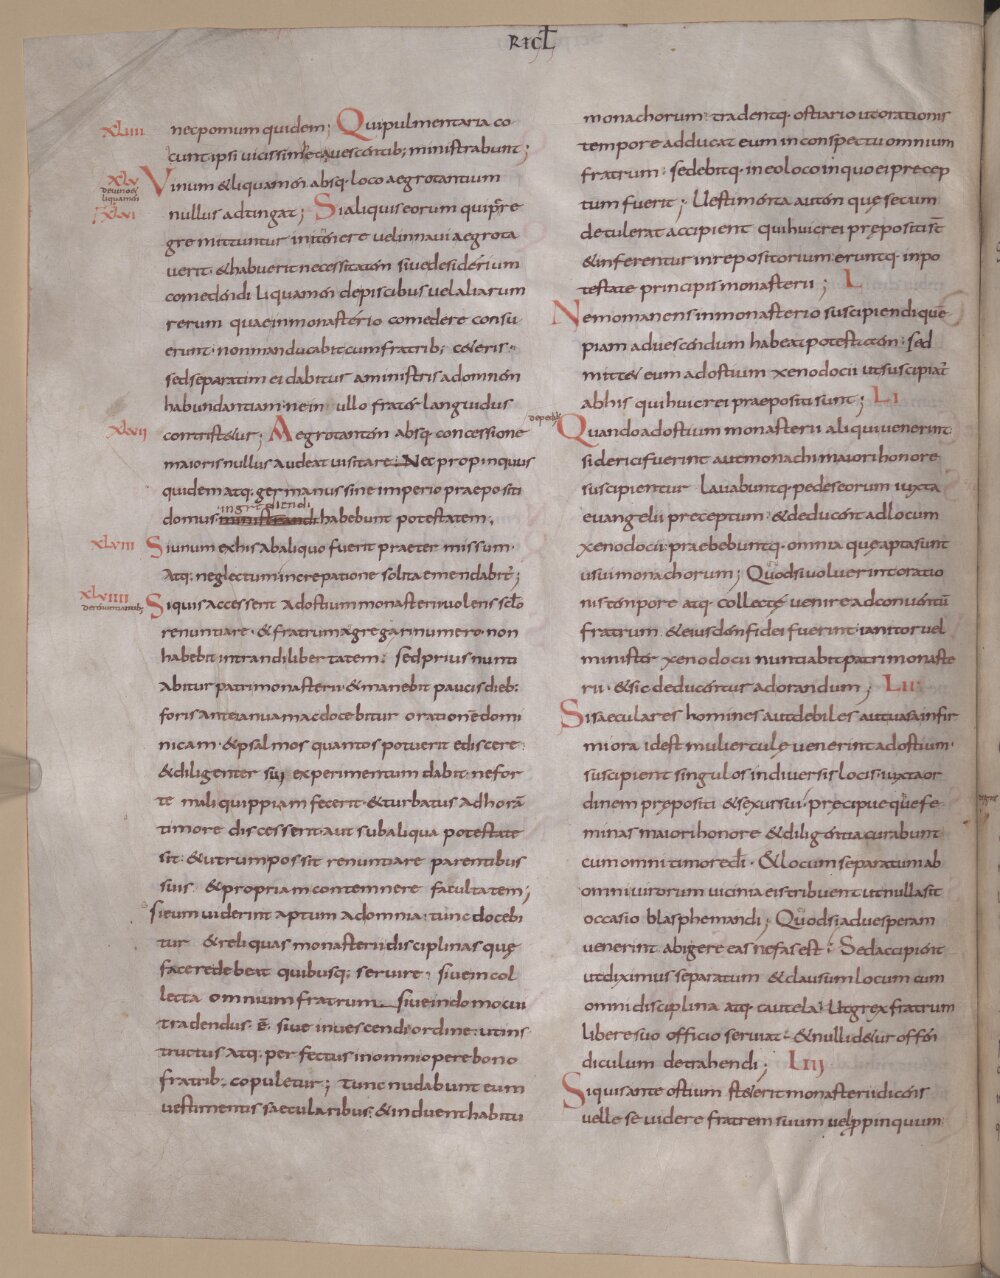 RICŁ
xLiiii
nec pomum quidem; Qui pulmentaria co
cunt ipsi vicissim et aquescentib; ministrabunt;
xLv
de vino et
liquamen
Vinum & liquamen absq. loco aegrotantium
xLvi
nullus adtingat; Si aliquis eorum qui p̄re
gre mittuntur in itenere vel in navi aegrota
verit. & habuerit necessitatem sive desiderium
comedendi liquamen de piscibus vel aliarum
rerum quae in monasterio comedere consu
erunt. non manducabit cum fratrib; ceteris.
sed separatim ei dabitur a ministris ad omnem
habundantiam. ne in ullo frater languidus
xLvii
contristetur; Aegrotantem absq. concessione
maioris nullus audeat visitare. Nec propinquus
quidem atq. germanus sine imperio praepositi
ingrediendi
domus. ministrandi habebunt potestatem.
xLviii
Si unum ex his ab aliquo fuerit praeter missum.
Atq. neglectum increpatione solita emendabit̄;
xLviiii
de renuntiantib;
Si quis accesserit ad ostium monasterii volens sc̄lo
renuntiare. & fratrum agregari numero. non
habebit intrandi libertatem. sed prius nunti
abitur patri monasterii. & manebit paucis dieb;
foris ante ianuam ac docebitur orationē domi
nicam. & psalmos quantos potuerit ediscere.
& diligenter sui experimentum dabit. ne for
te mali quippiam fecerit. & turbatus ad horā
timore discesserit. aut sub aliqua potestate
sit. & utrum possit renuntiare parentibus
suis & propriam contemnere facultatem;
si eum viderint aptum ad omnia. tunc docebi
tur & reliquas monasterii disciplinas quę
facere debeat quibusq; servire. sive in col
lecta omnium fratrum. sive in domo cui
tradendus. ē. sive in vescendi ordine. ut ins
tructus atq. perfectus in omni opere bono
fratrib; copuletur; tunc nudabunt eum
vestimentis saecularibus. & induent habitu
monachorum. tradentq. ostiario ut orationis
tempore adducat eum in conspectu omnium
fratrum. sedebitq. in eo loco in quo ei precep
tum fuerit; Uestimenta autem quę secum
detulerat accipient qui huic rei prępositi st̄
& inferentur in repositorium. eruntq. in po
testate principis monasterii; L
Nemo manens in monasterio suscipiendi quē
piam ad vescendum habeat potestatem. sed
mittet eum ad ostium xenodocii ut suscipiat̄
ab his qui huic rei praepositi sunt; Li
Quando ad ostium monasterii aliqui venerint.
si clerici fuerint aut monachi maiori honore
suscipientur lavabuntq. pedes eorum iuxta
evangelii preceptum. & deducent ad locum
xenodocii. praebebuntq. omnia que apta sunt
usui monachorum; Quodsi voluerint oratio
nis tempore atq. collectę venire ad conventū
fratrum. & eiusdem fidei fuerint. ianitor vel
minister xenodocii nuntiabit patri monaste
rii. & sic deducentur ad orandum; Lii.
Si saeculares homines aut debiles aut vasa infir
miora. id est mulierculę venerint ad ostium.
suscipient singulos in diversis locis. iuxta or
dinem prępositi & sexus sui. pręcipue quoq; fe
minas maiori honore & diligentia curabunt
cum omni timore dī. & locum separatum ab
omni virorum vicinia eis tribuent ut nulla sit
occasio blasphemandi; Quodsi ad vesperam
venerint abigere eas nefas est; Sed accipient
ut diximus separatum & clausum locum cum
omni disciplina atq. cautela. Ut grex fratrum
libere suo officio serviat. & nulli detur offen
diculum detrahendi; Liij
Si quis ante ostium steterit monasterii dicens
velle se videre fratrem suum vel ꝓpinquum